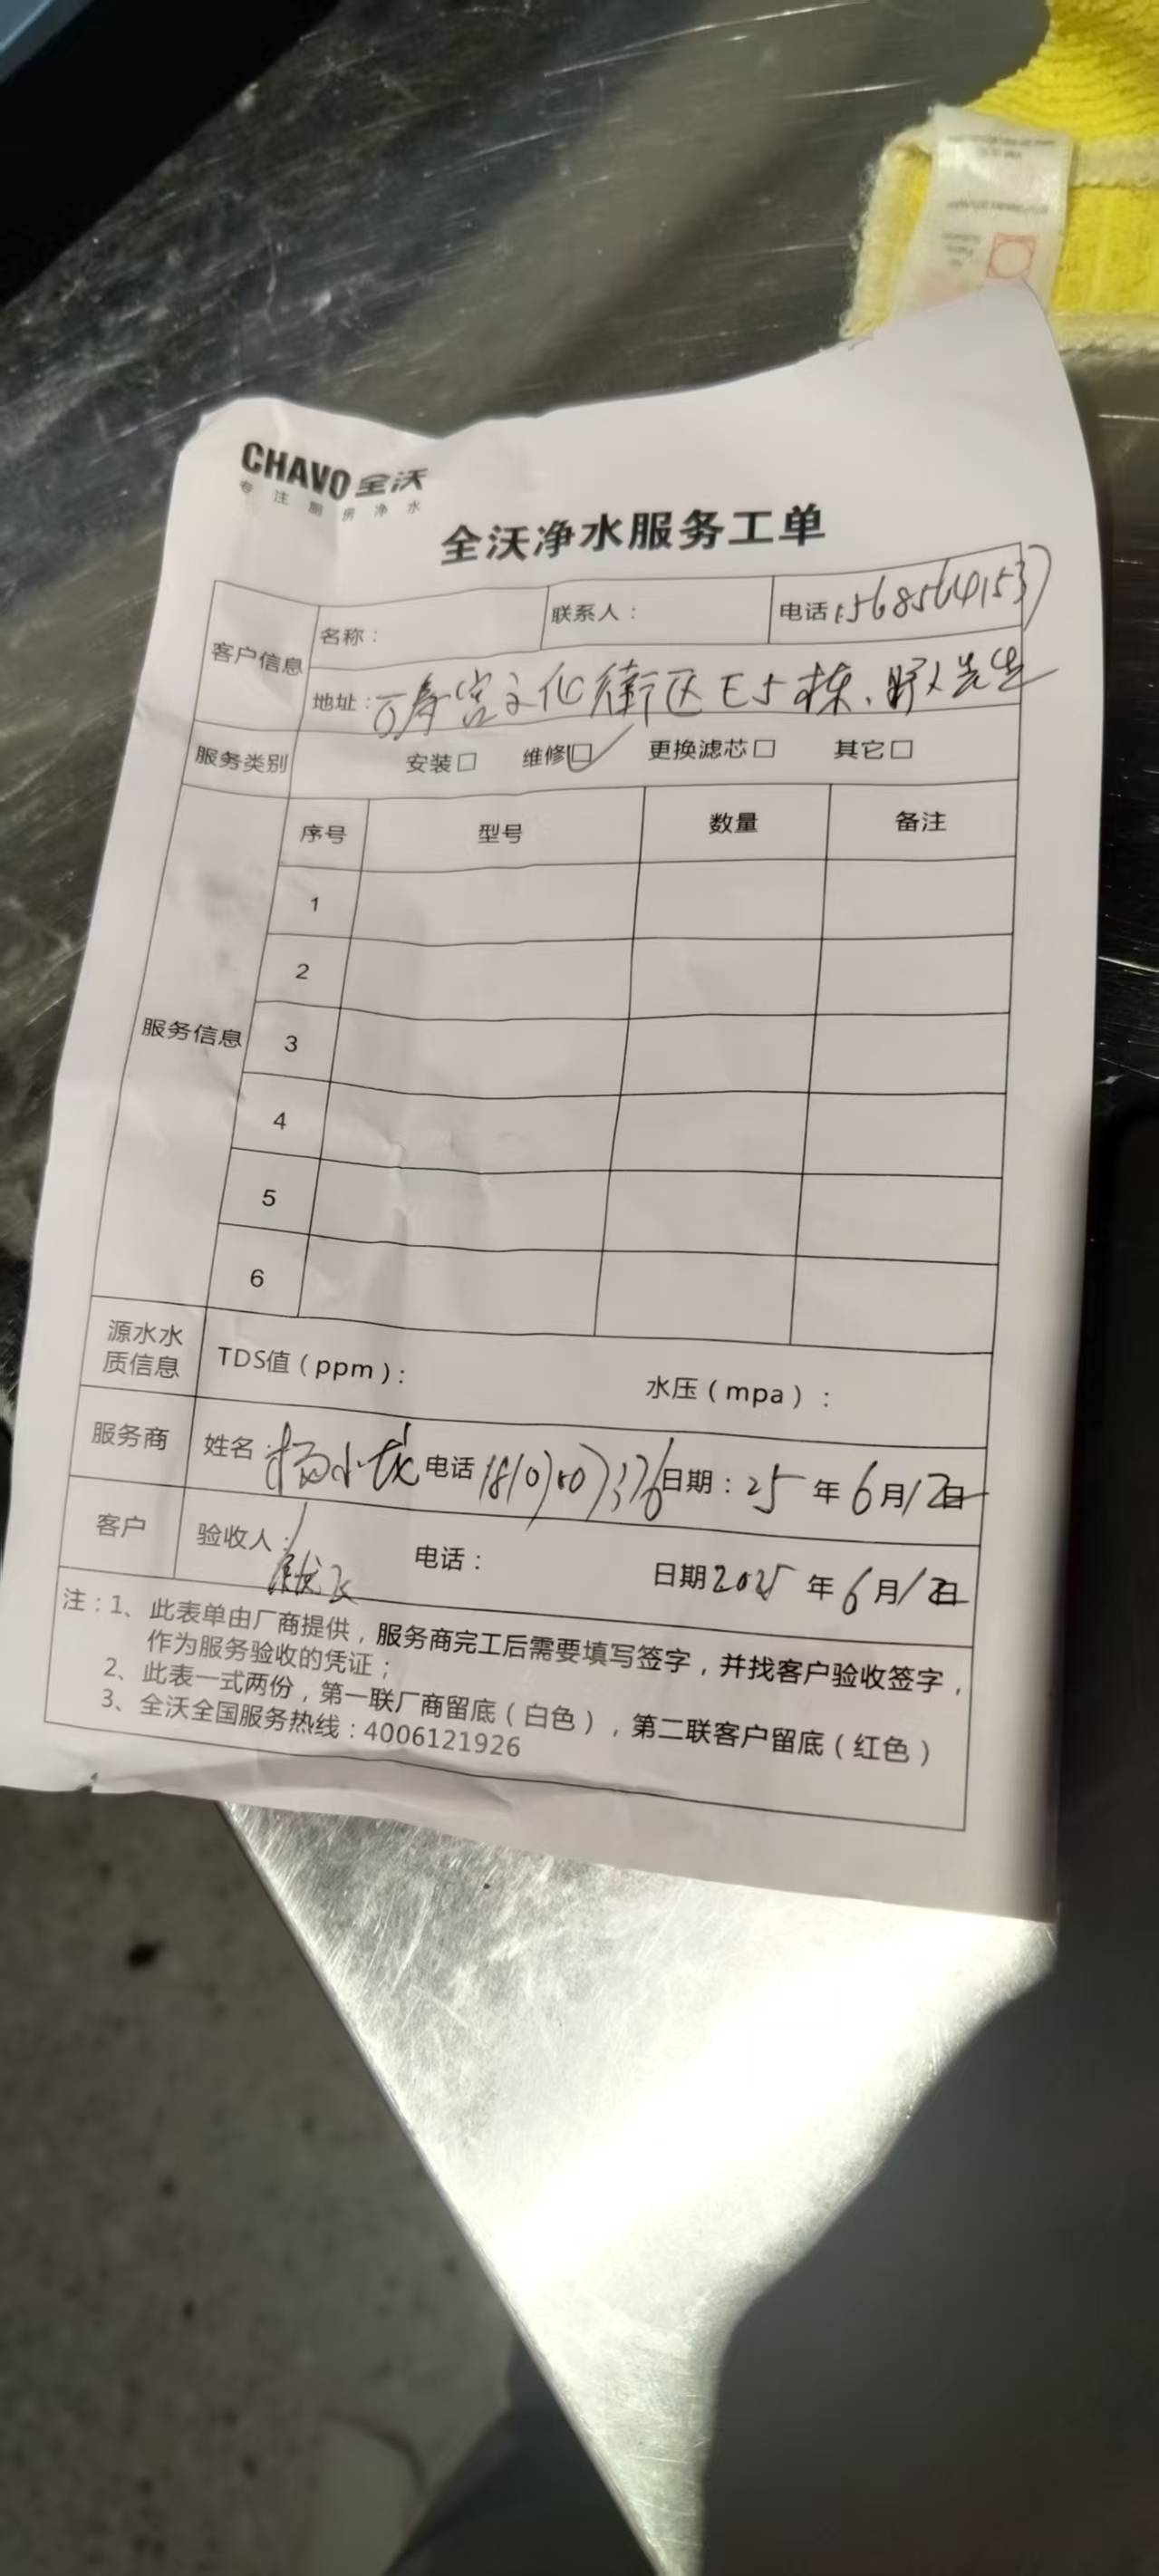 CHAVO 全沃
专注厨房净水
全沃净水服务工单
客户信息 名称： 联系人： 电话：
地址：万寿宫文化街区E5栋、 先生
服务类别 安装□ 维修□✓ 更换滤芯□ 其它□
服务信息 序号 型号 数量 备注
1
2
3
4
5
6
源水水质信息 TDS值（ppm）： 水压（mpa）：
服务商 姓名：杨小龙 电话 日期：25年6月12日
客户 验收人： 电话： 日期2025年6月12日
注：1、此表单由厂商提供，服务商完工后需要填写签字，并找客户验收签字，
作为服务验收的凭证；
2、此表一式两份，第一联厂商留底（白色），第二联客户留底（红色）
3、全沃全国服务热线：4006121926